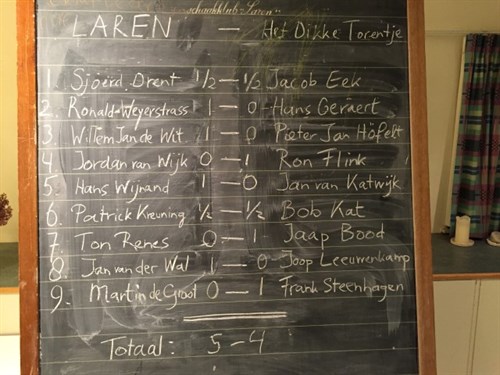 schaakklub "Laren"
LAREN — Het Dikke Torentje
1. Sjoerd Drent 1/2 — 1/2 Jacob Eek
2. Ronald Weyerstrass 1 — 0 Hans Geraert
3. Willem Jan de Wit 1 — 0 Pieter Jan Höfelt
4. Jordan van Wijk 0 — 1 Ron Flink
5. Hans Wijnand 1 — 0 Jan van Katwijk
6. Patrick Kreuning 1/2 — 1/2 Bob Kat
7. Ton Renes 0 — 1 Jaap Bood
8. Jan van der Wal 1 — 0 Joop Leeuwenkamp
9. Martin de Groot 0 — 1 Frank Steenhagen
Totaal: 5 — 4